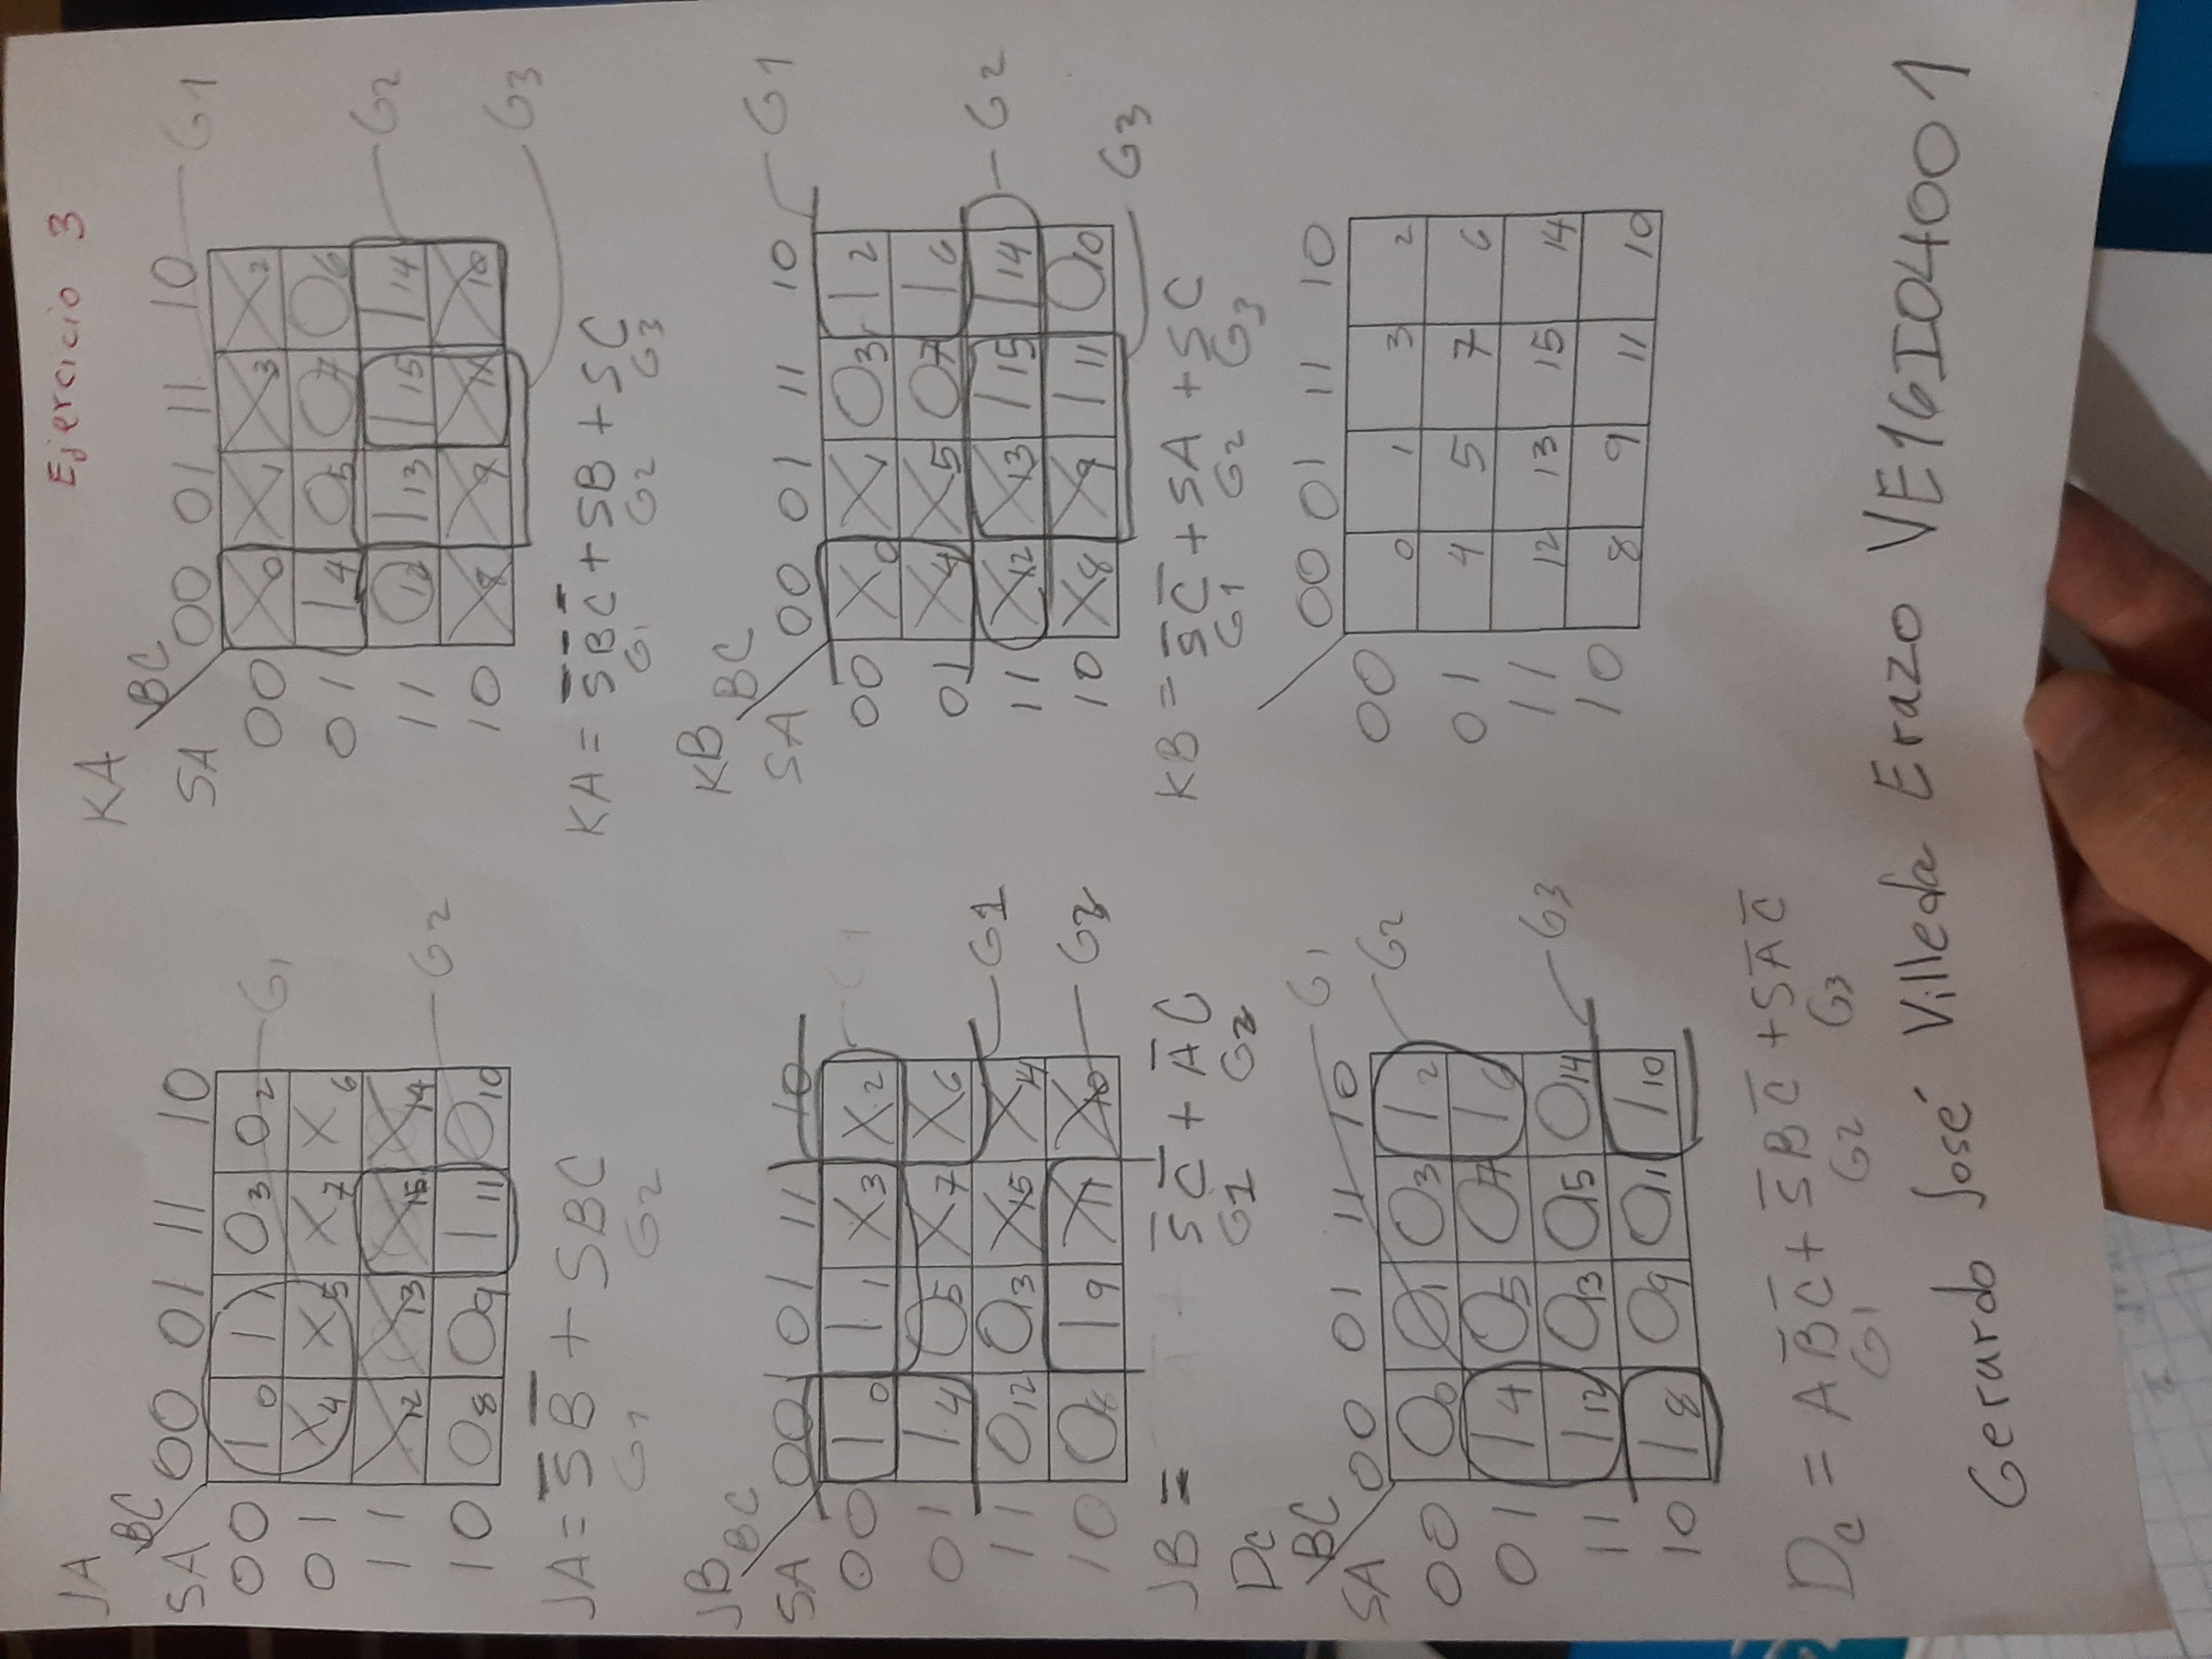 Ejercicio 3
JA
BC
SA 00 01 11 10
00 1 0 1 1 0 3 0 2 G1
01 X 4 X 5 X 7 X 6
11 X 12 X 13 X 15 X 14
10 0 8 0 9 1 11 0 10 G2
JA = S̅ B̅ + SBC
G1 G2
KA
BC
SA 00 01 11 10 G1
00 X 0 X 1 X 3 X 2
01 1 4 0 5 0 7 0 6
11 0 12 1 13 1 15 1 14 G2
10 X 8 X 9 X 11 X 10
G3
KA = S̅ B̅ C̅ + SB + SC
G1 G2 G3
JB
BC
SA 00 01 11 10
00 1 0 1 1 X 3 X 2
01 1 4 0 5 X 7 X 6
11 0 12 0 3 X 15 X 14 G1
10 0 8 1 9 X 11 X 10 G2
JB = S̅ C̅ + A̅ C
G1 G2
KB
BC
SA 00 01 11 10 G1
00 X 0 X 1 0 3 1 2
01 X 4 X 5 0 7 1 6
11 X 12 X 13 1 15 1 14 G2
10 X 8 X 9 1 11 0 10
G3
KB = S̅ C̅ + SA + SC
G1 G2 G3
Dc
BC
G1
SA 00 01 11 10
00 0 0 0 1 0 3 1 2 G2
01 1 4 0 5 0 7 1 6
11 1 12 0 13 0 15 0 14 G3
10 1 8 0 9 0 11 1 10
Dc = A B̅ C̅ + S̅ B C̅ + S A̅ C̅
G1 G2 G3
00 01 11 10
00 0 1 3 2
01 4 5 7 6
11 12 13 15 14
10 8 9 11 10
Gerardo José Villeda Erazo VE16I04001